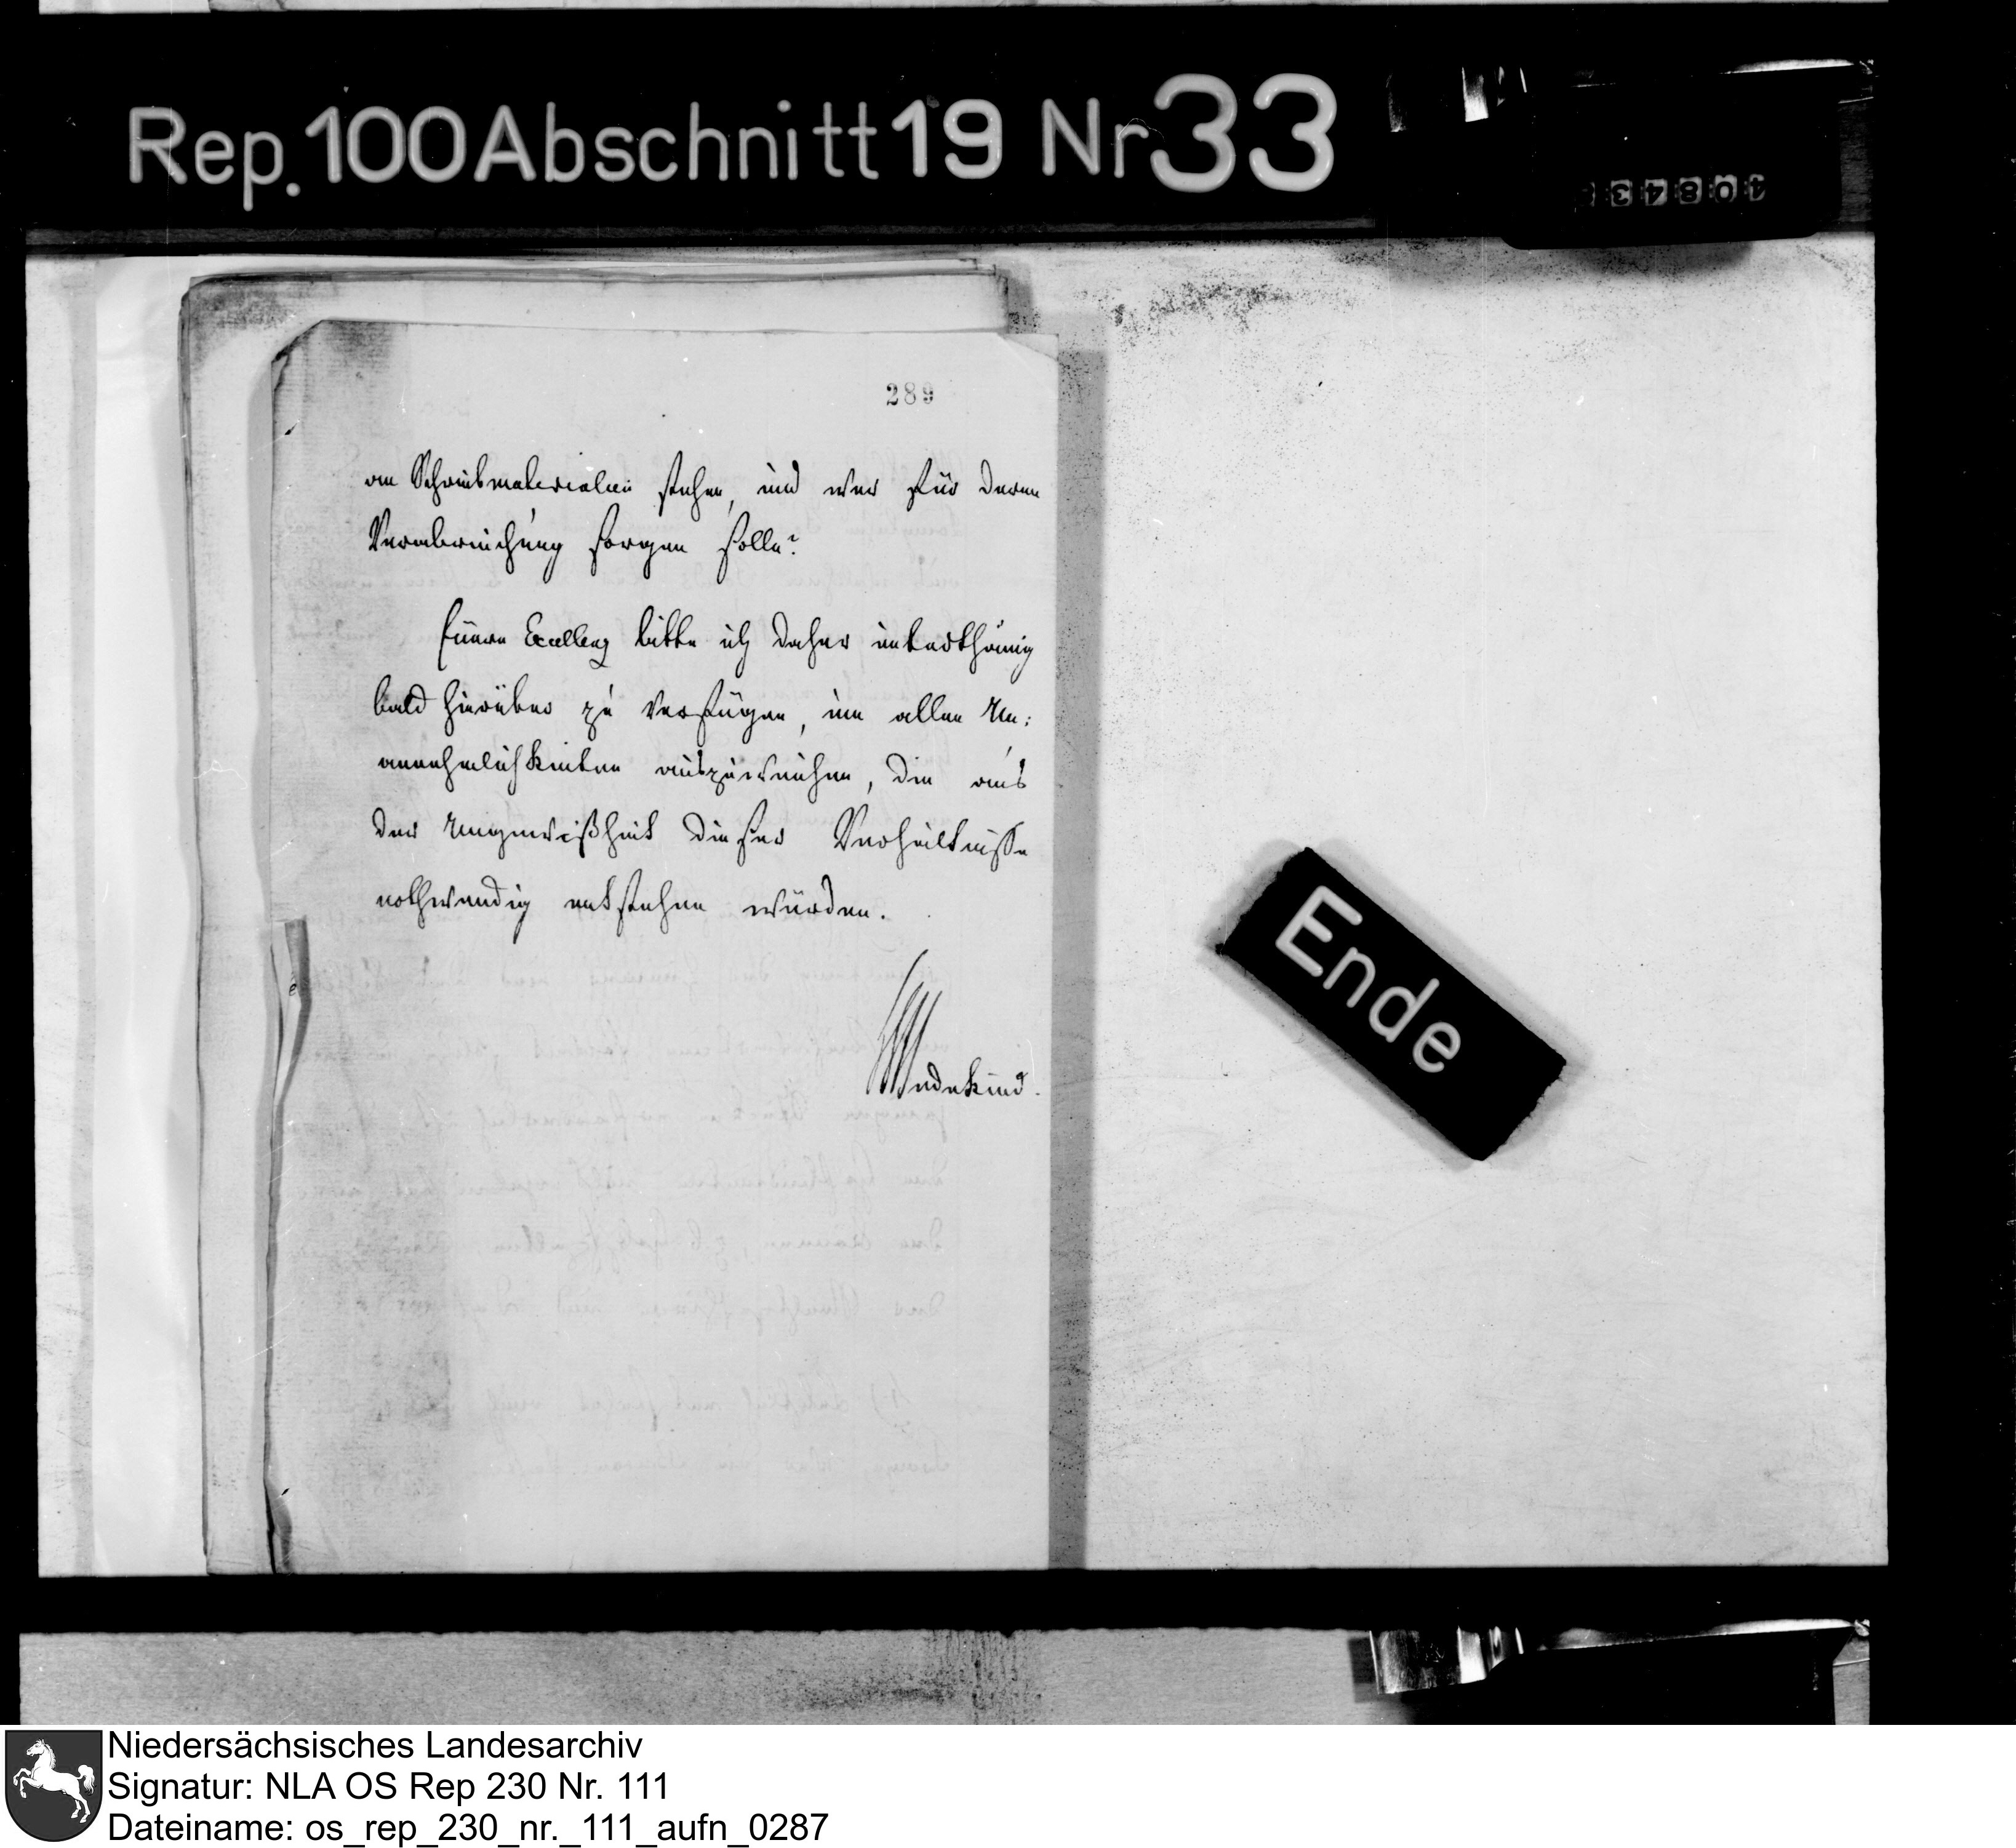 Rep. 100 Abschnitt 19 Nr 33
289
an Schreibmaterialien stehen, und wer für deren
Verabreichung sorgen solle?
Euere Excellenz bitte ich daher unterthänig
bald hierüber zu verfügen, um allen Un:
annehmlichkeiten auszuweichen, die aus
der Ungewißheit dieser Verhältnisse
nothwendig entstehen würden.
Wedekind.
Ende
Niedersächsisches Landesarchiv
Signatur: NLA OS Rep 230 Nr. 111
Dateiname: os_rep_230_nr._111_aufn_0287